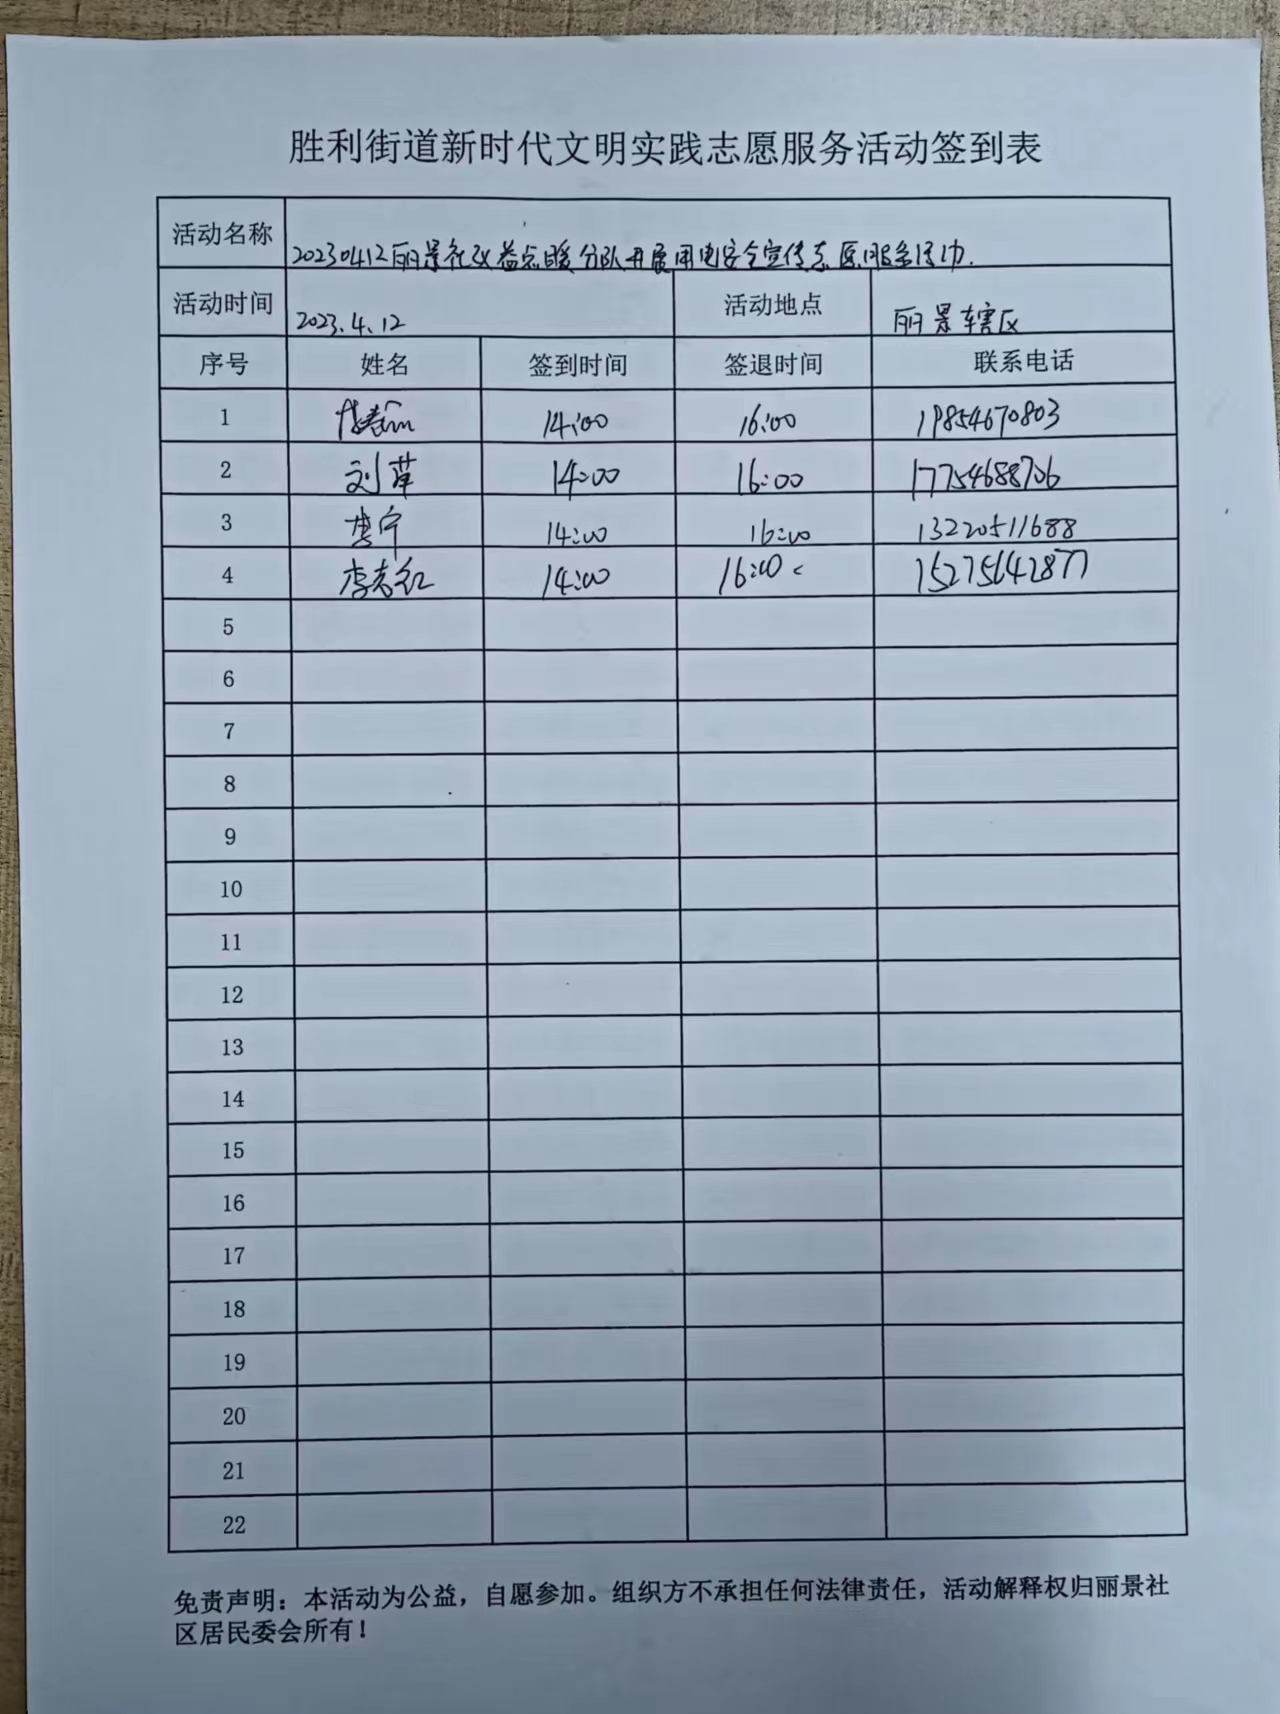 胜利街道新时代文明实践志愿服务活动签到表
活动名称 20230412丽景社区益点暖分队开展用电安全宣传志愿服务活动.
活动时间 2023.4.12 活动地点 丽景辖区
序号 姓名 签到时间 签退时间 联系电话
1 14:00 16:00 19854670803
2 刘萍 14:00 16:00 17754688706
3 李宁 14:00 16:00 13220511688
4 李志红 14:00 16:00 15275642877
5
6
7
8
9
10
11
12
13
14
15
16
17
18
19
20
21
22
免责声明：本活动为公益，自愿参加。组织方不承担任何法律责任，活动解释权归丽景社
区居民委会所有！